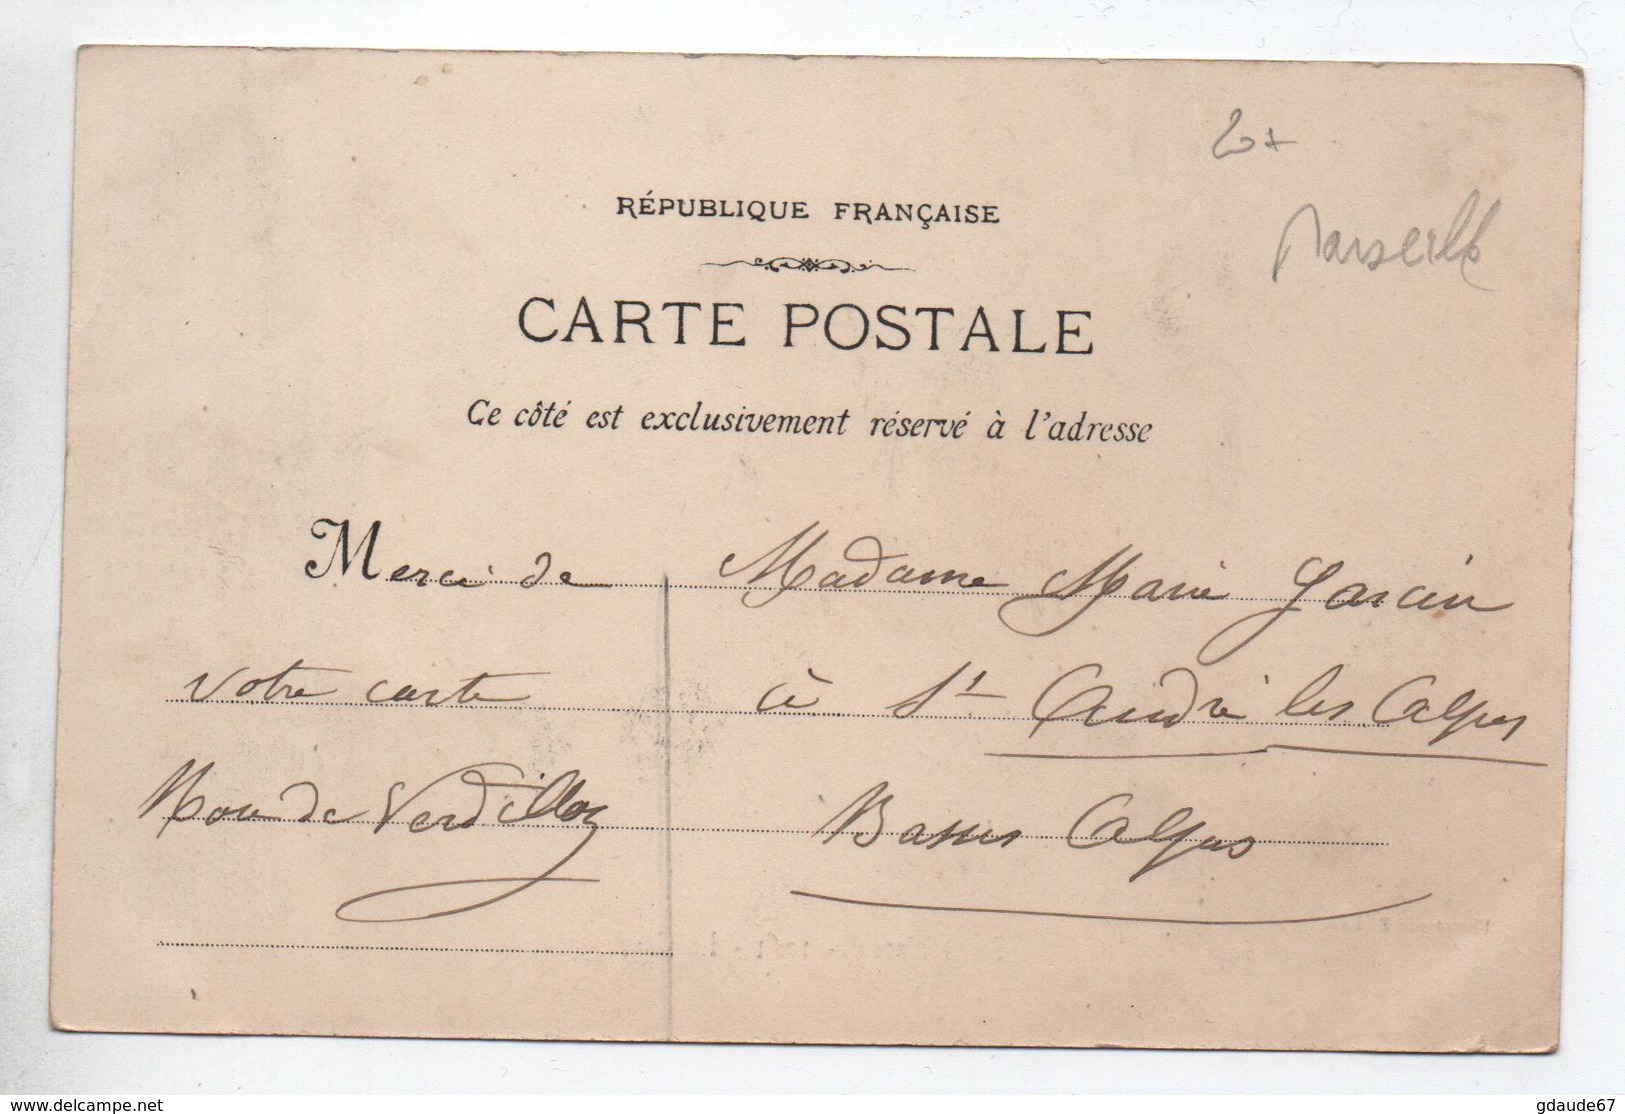 20+
Marseille
RÉPUBLIQUE FRANÇAISE
CARTE POSTALE
Ce côté est exclusivement réservé à l'adresse
Merci de
votre carte
de Verdillon
Madame Marie Garcin
à St André les Alpes
Basses Alpes
www.delcampe.net
gdaude67